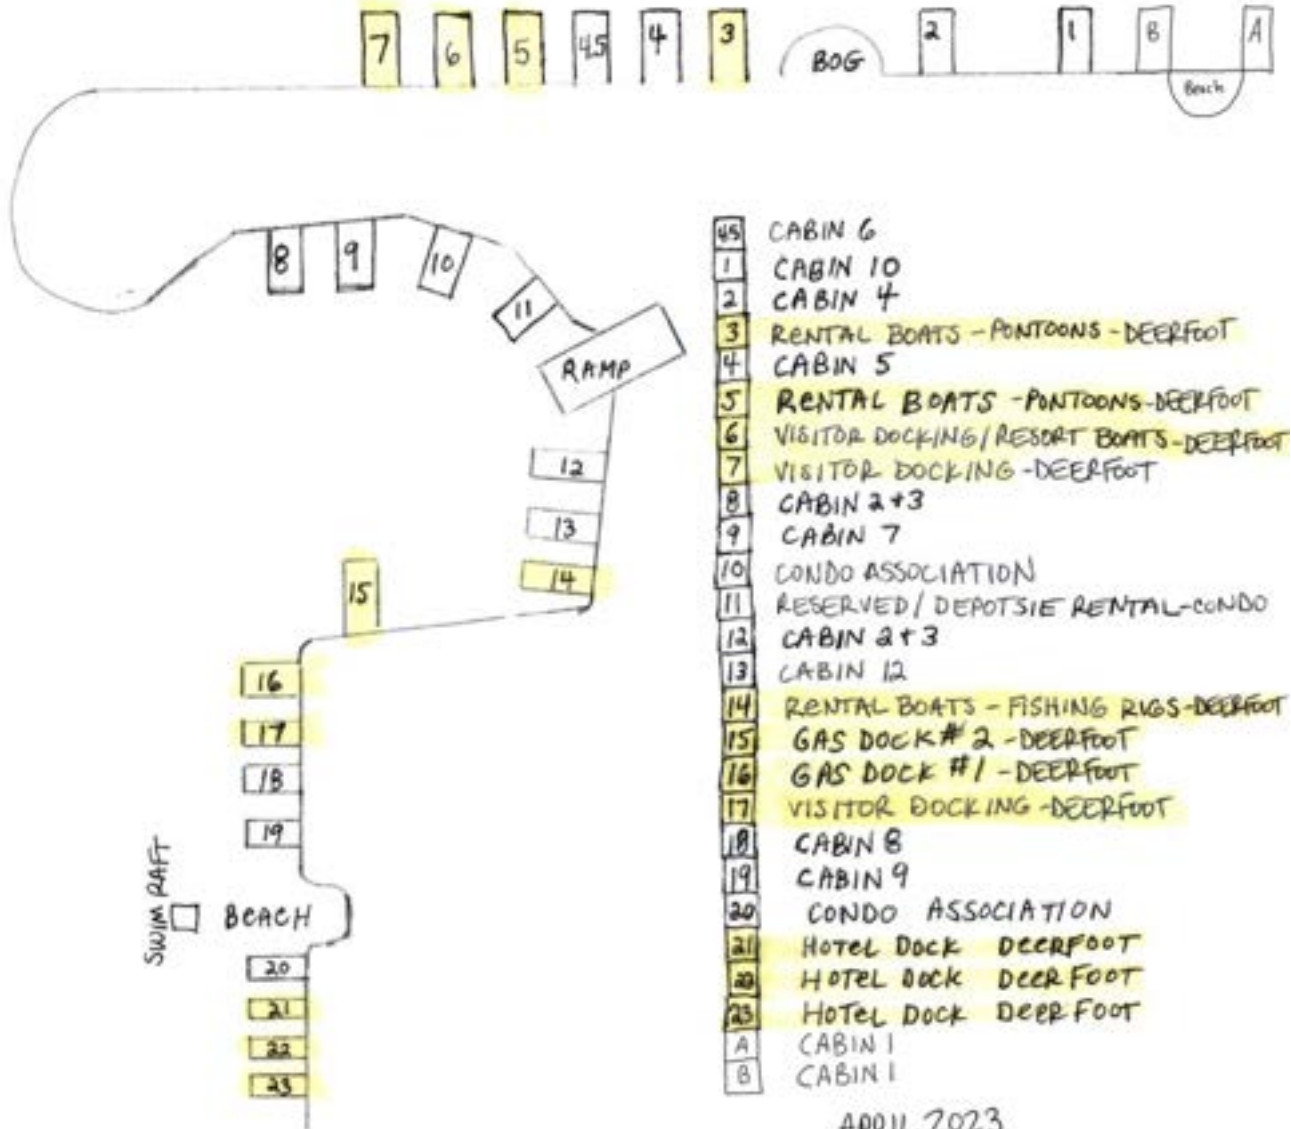 7 6 5 45 4 3 BOG 2 1 B A
Beach
8 9 10 11
RAMP
12
13
14
15
16
17
18
19
SWIM RAFT
BEACH
20
21
22
23
45 CABIN 6
1 CABIN 10
2 CABIN 4
3 RENTAL BOATS - PONTOONS - DEERFOOT
4 CABIN 5
5 RENTAL BOATS - PONTOONS - DEERFOOT
6 VISITOR DOCKING / RESORT BOATS - DEERFOOT
7 VISITOR DOCKING - DEERFOOT
8 CABIN 2 + 3
9 CABIN 7
10 CONDO ASSOCIATION
11 RESERVED / DEPOTSIE RENTAL - CONDO
12 CABIN 2 + 3
13 CABIN 12
14 RENTAL BOATS - FISHING RIGS - DEERFOOT
15 GAS DOCK # 2 - DEERFOOT
16 GAS DOCK #1 - DEERFOOT
17 VISITOR DOCKING - DEERFOOT
18 CABIN 8
19 CABIN 9
20 CONDO ASSOCIATION
21 HOTEL DOCK DEERFOOT
22 HOTEL DOCK DEERFOOT
23 HOTEL DOCK DEERFOOT
A CABIN 1
B CABIN 1
APRIL 2023